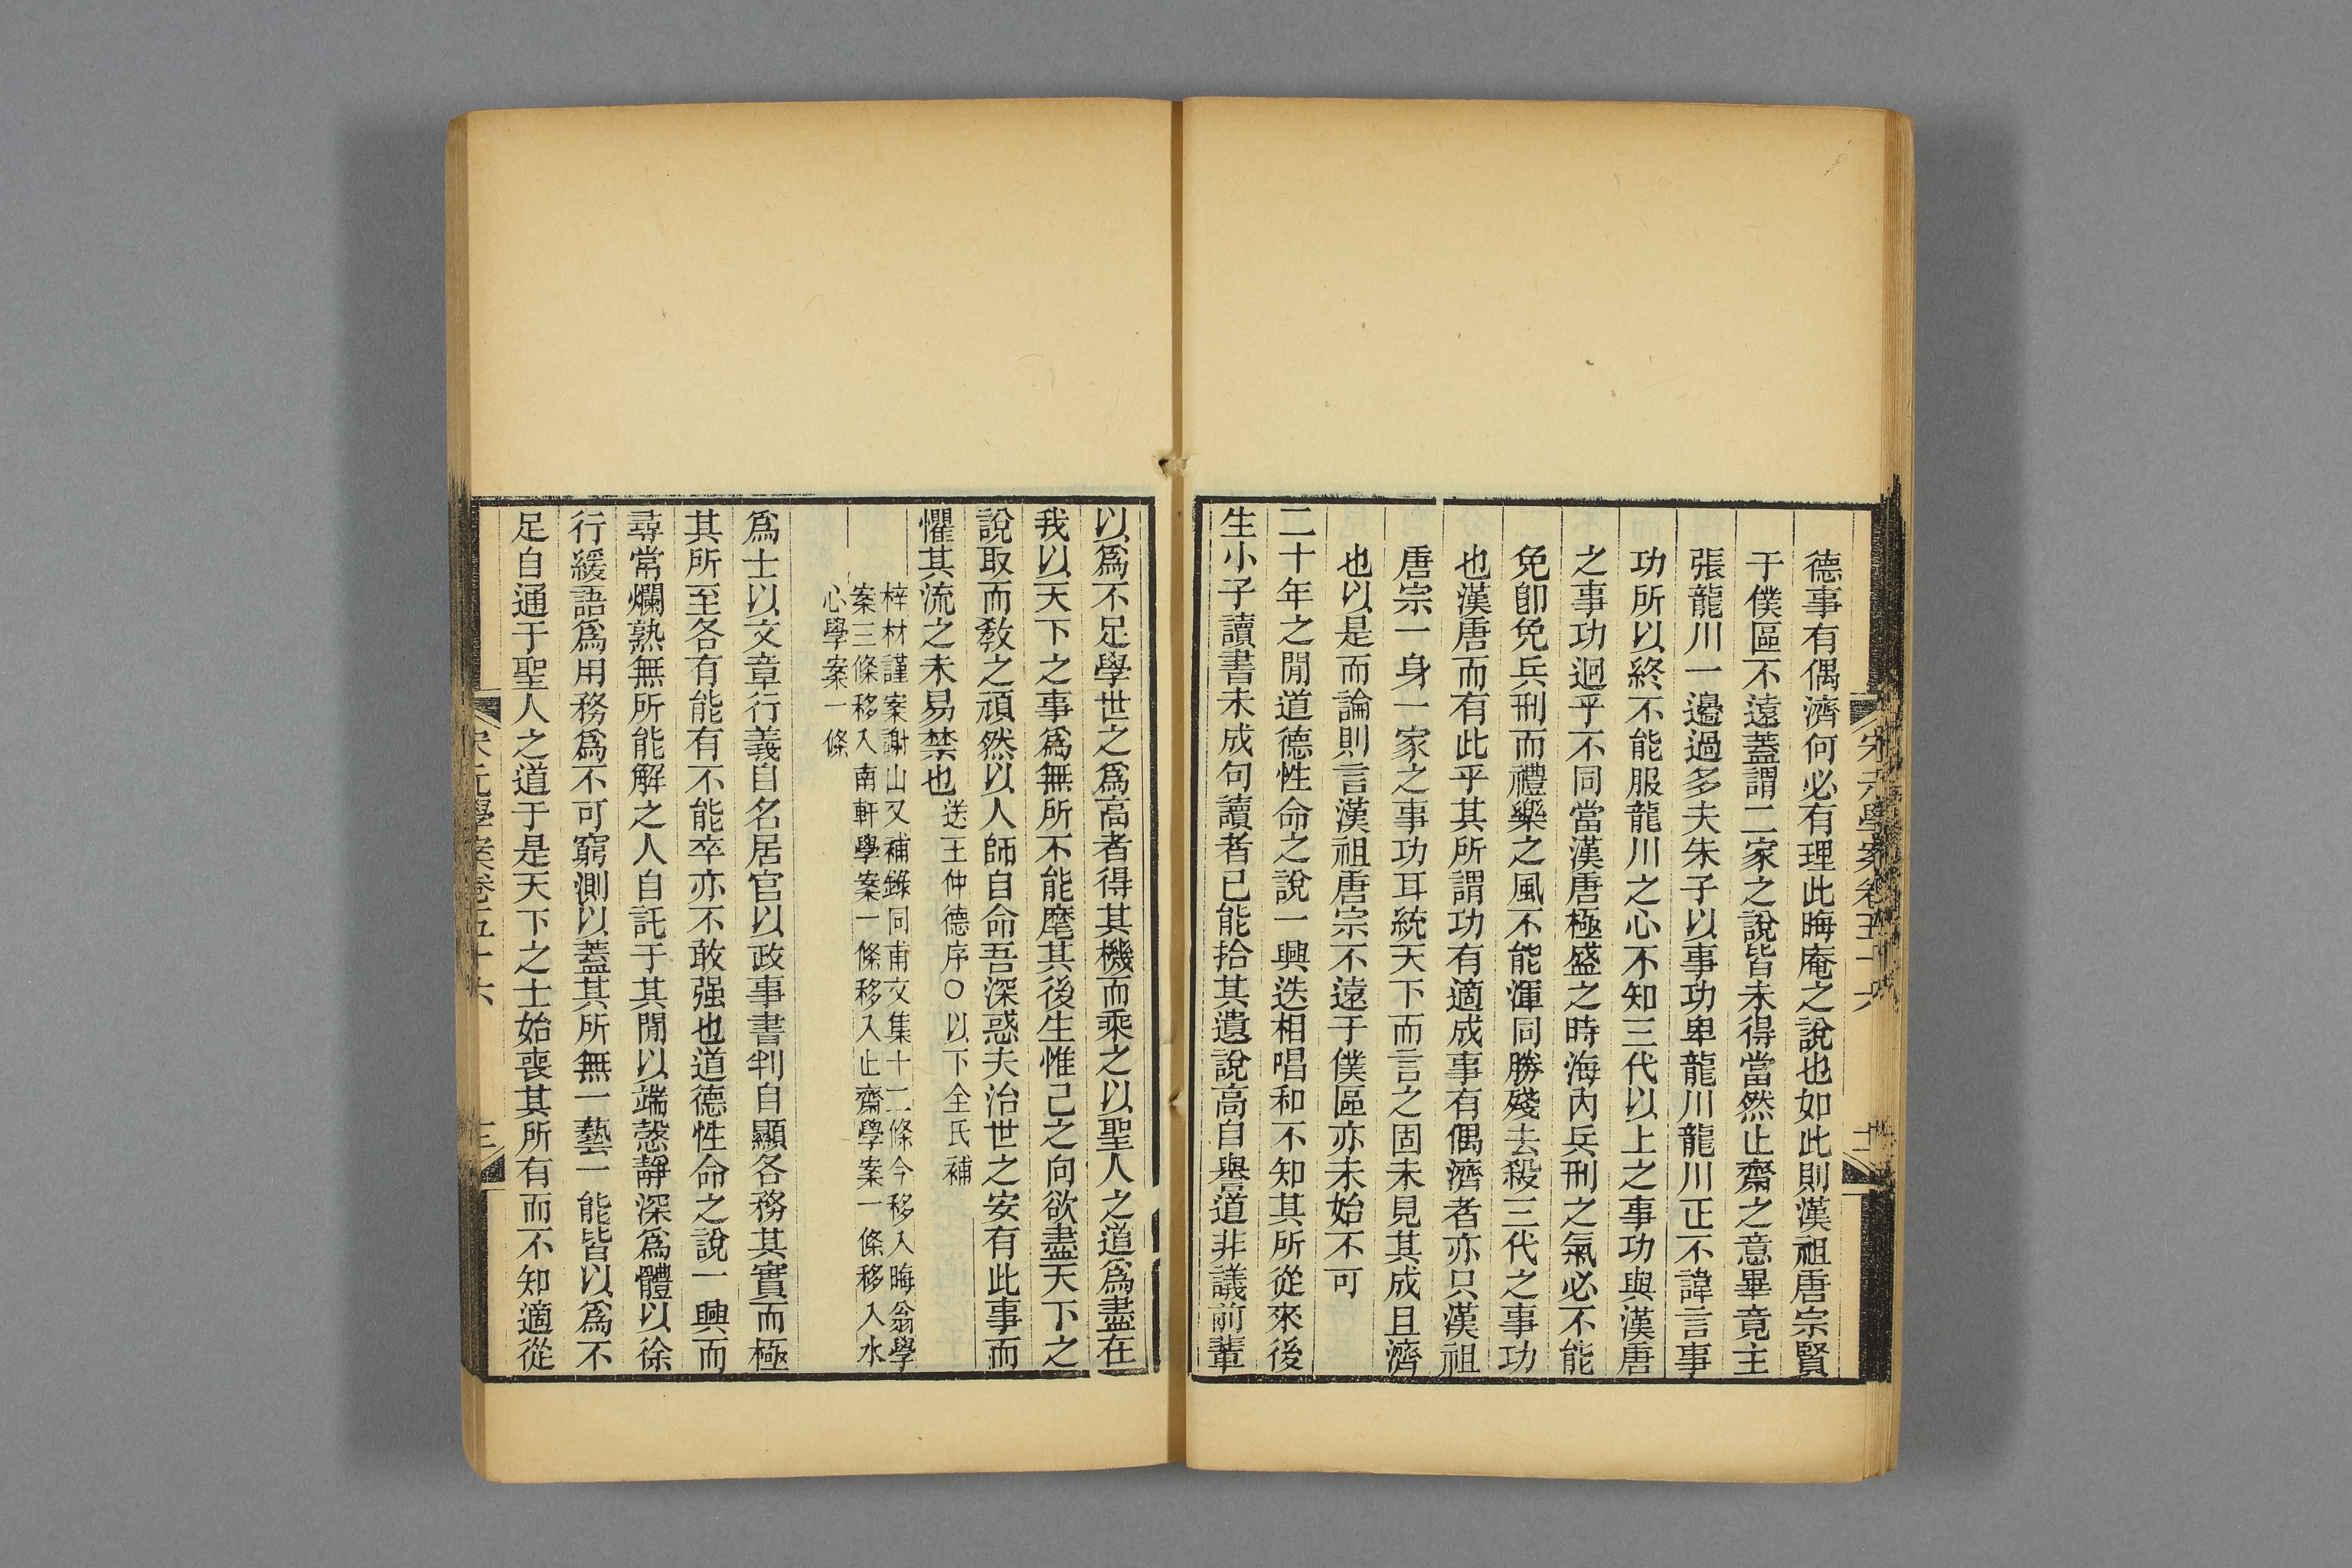 宋元學案卷五十六
德事有偶濟何必有理此晦庵之說也如此則漢祖唐宗賢
于僕區不遠蓋謂二家之說皆未得當然止齋之意畢竟主
張龍川一邊過多夫朱子以事功卑龍川龍川正不諱言事
功所以終不能服龍川之心不知三代以上之事功與漢唐
之事功迥乎不同當漢唐極盛之時海內兵刑之氣必不能
免卽免兵刑而禮樂之風不能渾同勝殘去殺三代之事功
也漢唐而有此乎其所謂功有適成事有偶濟者亦只漢祖
唐宗一身一家之事功耳統天下而言之固未見其成且濟
也以是而論則言漢祖唐宗不遠于僕區亦未始不可
二十年之閒道德性命之說一興迭相唱和不知其所從來後
生小子讀書未成句讀者已能拾其遺說高自譽道非議前輩
以爲不足學世之爲高者得其機而乘之以聖人之道爲盡在
我以天下之事爲無所不能麾其後生惟己之向欲盡天下之
說取而敎之頑然以人師自命吾深惑夫治世之安有此事而
懼其流之未易禁也送王仲德序○以下全氏補
梓材謹案謝山又補錄同甫文集十二條今移入晦翁學
案三條移入南軒學案一條移入止齋學案一條移入水
心學案一條
爲士以文章行義自名居官以政事書判自顯各務其實而極
其所至各有能有不能卒亦不敢强也道德性命之說一興而
尋常爛熟無所能解之人自託于其閒以端慤靜深爲體以徐
行緩語爲用務爲不可窮測以蓋其所無一藝一能皆以爲不
足自通于聖人之道于是天下之士始喪其所有而不知適從
宋元學案卷五十六